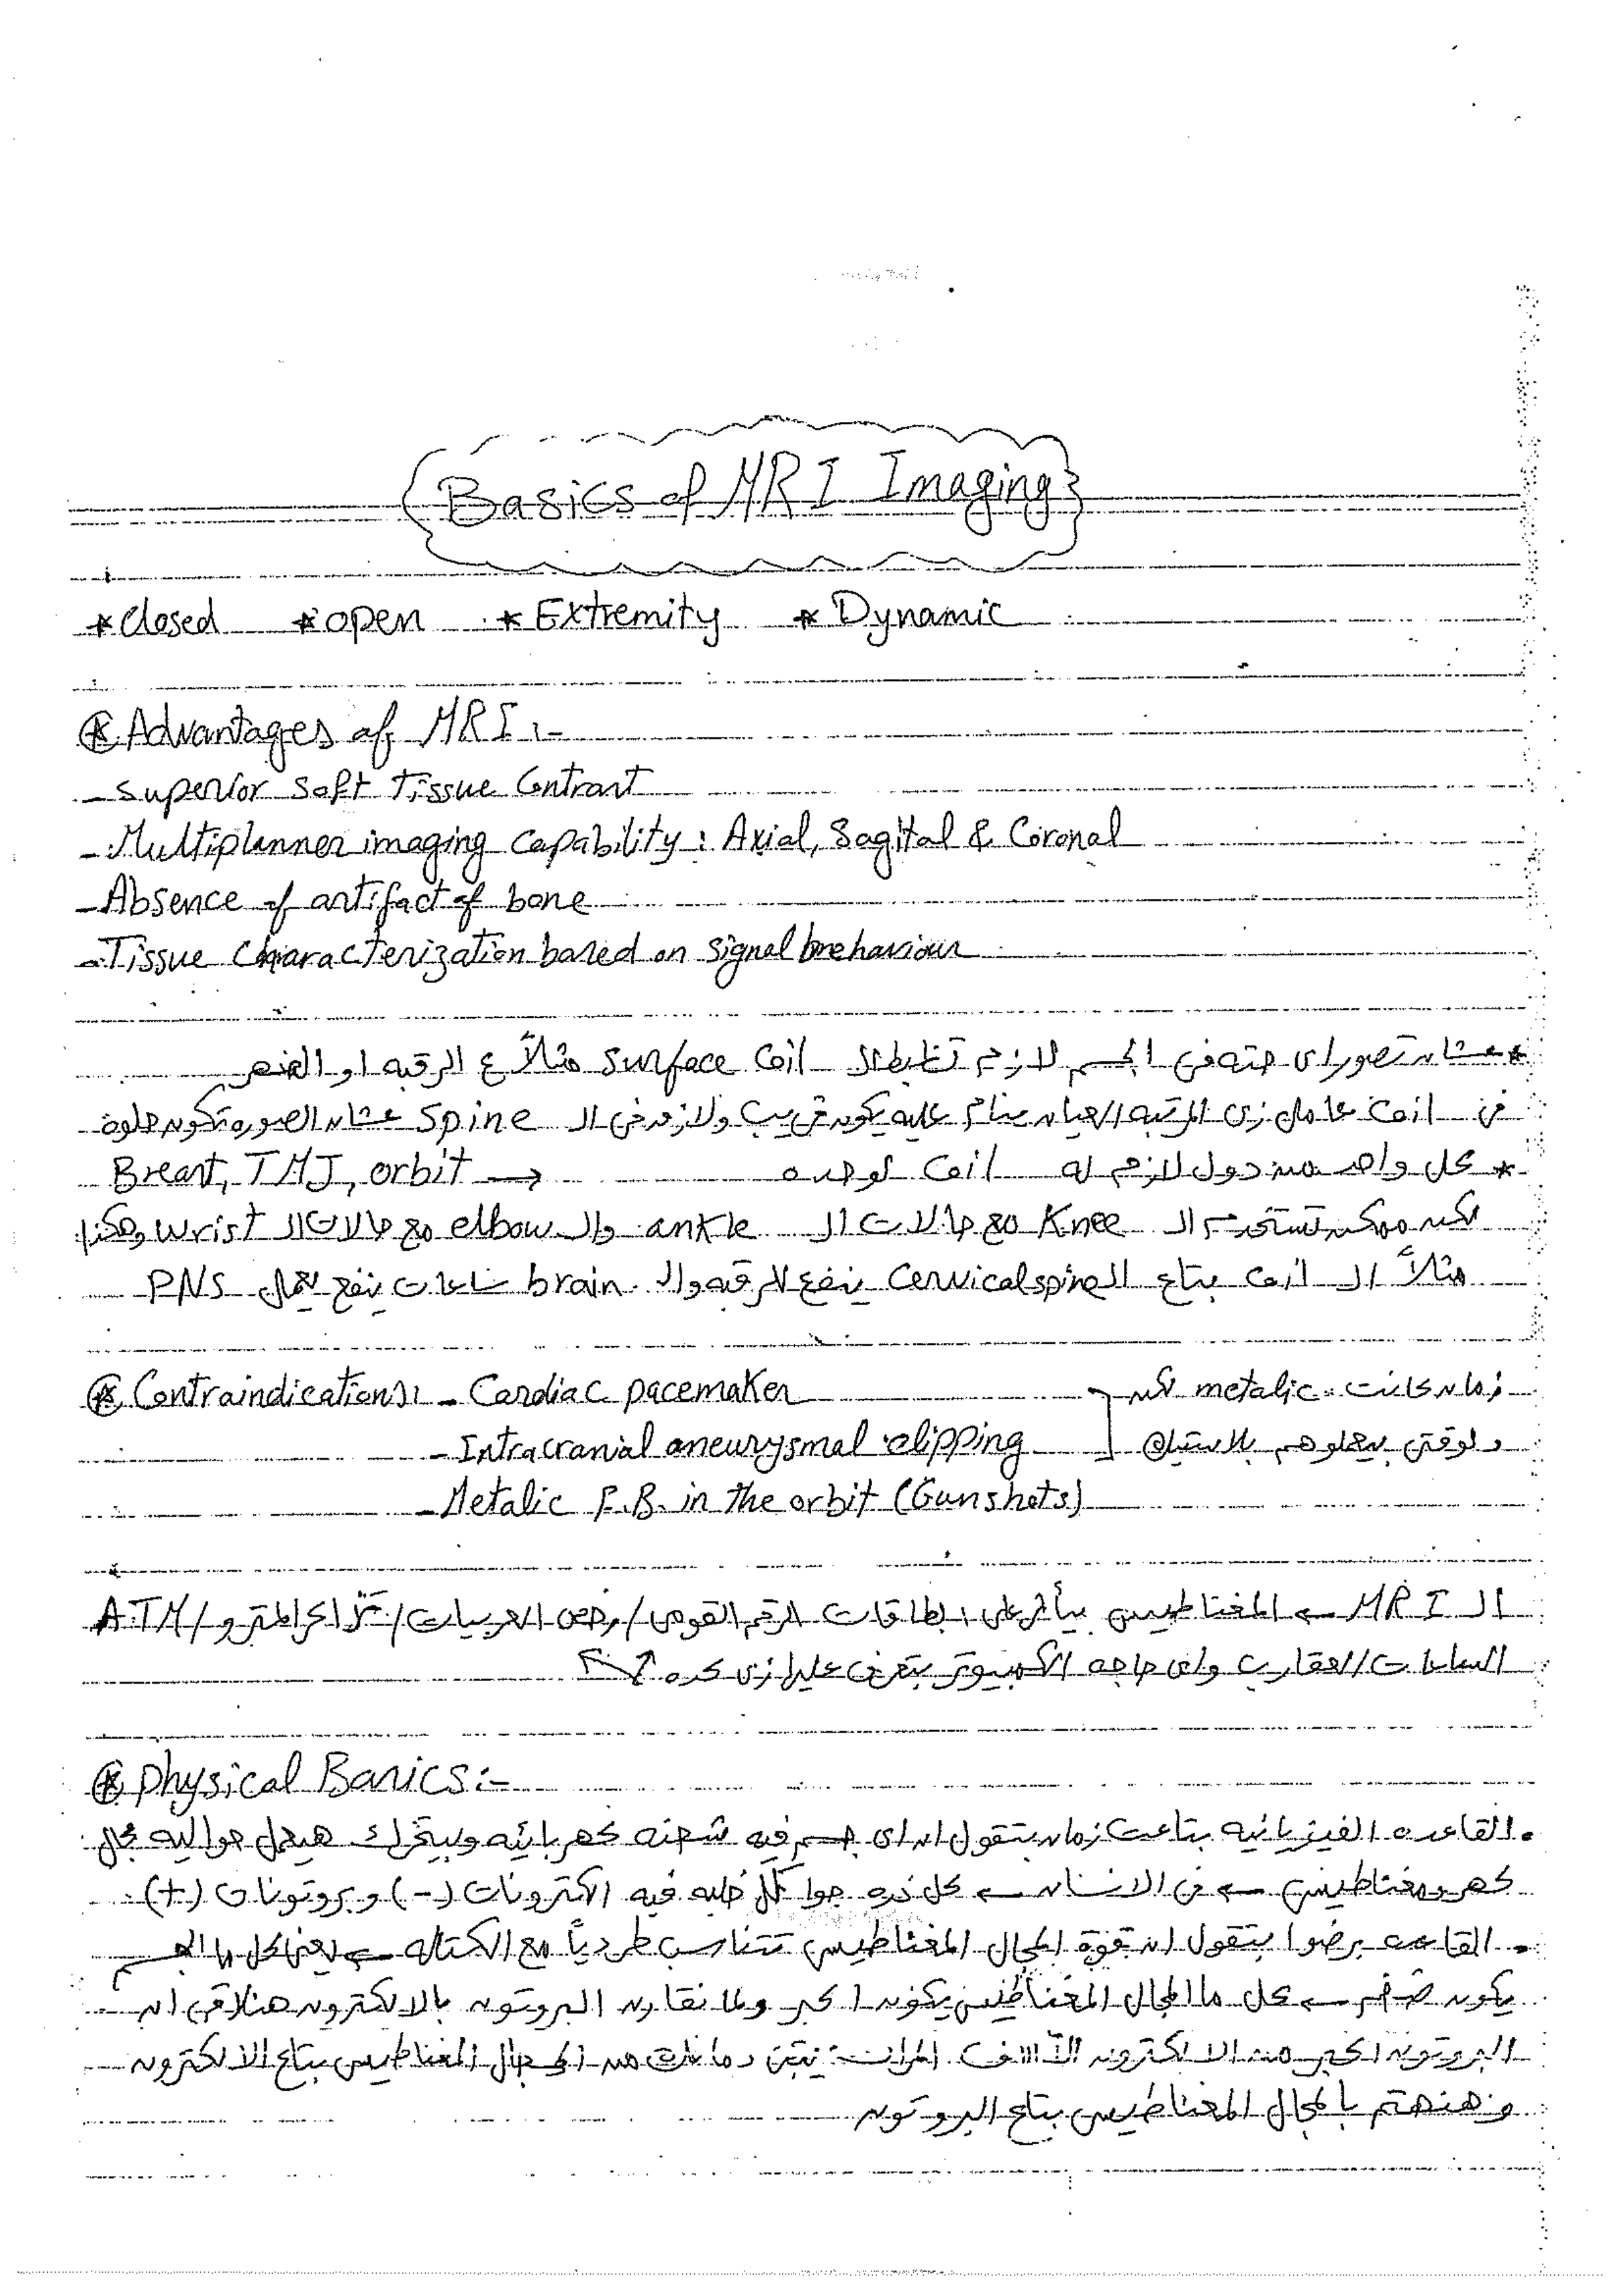 Basics of MRI Imaging
* Closed * open * Extremity * Dynamic
* Advantages of MRI :-
- Superior Soft Tissue Contrast
- Multiplanner imaging capability : Axial, Sagital & Coronal
- Absence of artifact of bone
- Tissue Characterization based on signal behaviour
* عشان تصور اى حته فى الجسم لازم تظبط ال surface مثلاً ع الرقبه او الصدر
فى عامل زى المرتبه العيان ينام عليه يكون قريب ولازق فى ال spine عشان الصوره تكون حلوة
* كل واحد من دول لازم له لوحده → Breast, TMJ, orbit
لكن ممكن تستخدم ال Knee مع حالات ال ankle وال elbow مع حالات ال wrist وهكذا
مثلاً ال بتاع ال Cervical spine ينفع للرقبه وال brain ساعات ينفع يعمل PNS
* Contraindications: - Cardiac pacemaker زمان كانت metalic لكن
- Intracranial aneurysmal clipping دلوقتى بيعملوهم بلاستيك
- Metalic F.B. in the orbit (Gunshots)
ال MRI ← المغناطيس بيأثر على بطاقات الرقم القومى / رخص العربيات / تذاكر المترو / ATM
الساعات العقارب واى حاجه الكمبيوتر بيتعرف عليها زى كده
* Physical Basics :-
. القاعده الفيزيائيه بتاعت زمان بتقول ان اى جسم فيه شحنه كهربائيه وبيتحرك هيعمل حواليه مجال
كهرومغناطيسى ← فى الانسان ← كل ذره جوا كل خليه فيه الكترونات (-) وبروتونات (+)
. القاعده برضوا بتقول ان قوة المجال المغناطيسى تتناسب طردياً مع الكتله ← يعنى كل ما الجسم
يكون ضخم ← كل ما المجال المغناطيسى يكون اكبر ولما نقارن البروتون بالالكترون هنلاقى ان
البروتون اكبر من الالكترون آلاف المرات المجال المغناطيسى بتاع الالكترون
وهنهتم بالمجال المغناطيسى بتاع البروتون